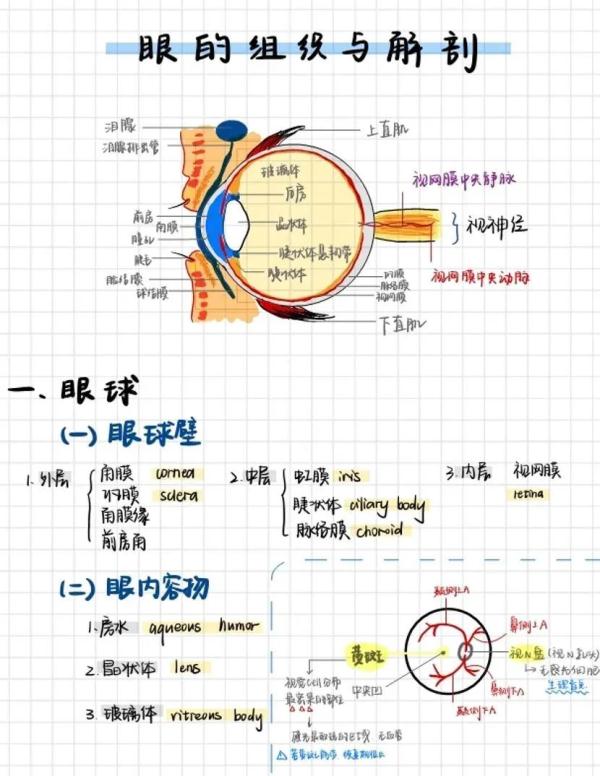 眼的组织与解剖
泪腺
泪腺排出管
上直肌
玻璃体
后房
视网膜中央静脉
前房
角膜
瞳孔
晶状体
视神经
睫毛
睫状体悬韧带
睑结膜
睫状体
球结膜
巩膜
脉络膜
视网膜
视网膜中央动脉
下直肌
一、眼球
(一) 眼球壁
1. 外层
角膜 cornea
巩膜 sclera
角膜缘
前房角
2. 中层
虹膜 iris
睫状体 ciliary body
脉络膜 choroid
3. 内层 视网膜
retina
(二) 眼内容物
1. 房水 aqueous humor
2. 晶状体 lens
3. 玻璃体 vitreous body
颞侧上A
鼻侧上A
黄斑
视N盘 (视N乳头)
中央凹
生理盲点
鼻侧下A
颞侧下A